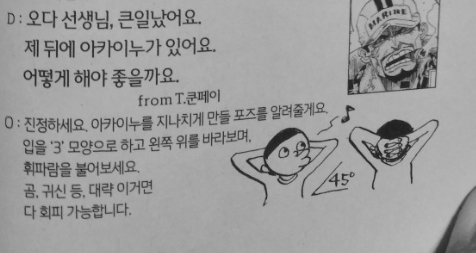 D: 오다 선생님, 큰일났어요.
제 뒤에 아카이누가 있어요.
어떻게 해야 좋을까요.
from T.쿤페이
O: 진정하세요. 아카이누를 지나치게 만들 포즈를 알려줄게요.
입을 '3' 모양으로 하고 왼쪽 위를 바라보며,
휘파람을 불어보세요.
곰, 귀신 등, 대략 이거면
다 회피 가능합니다.
MARINE
45°